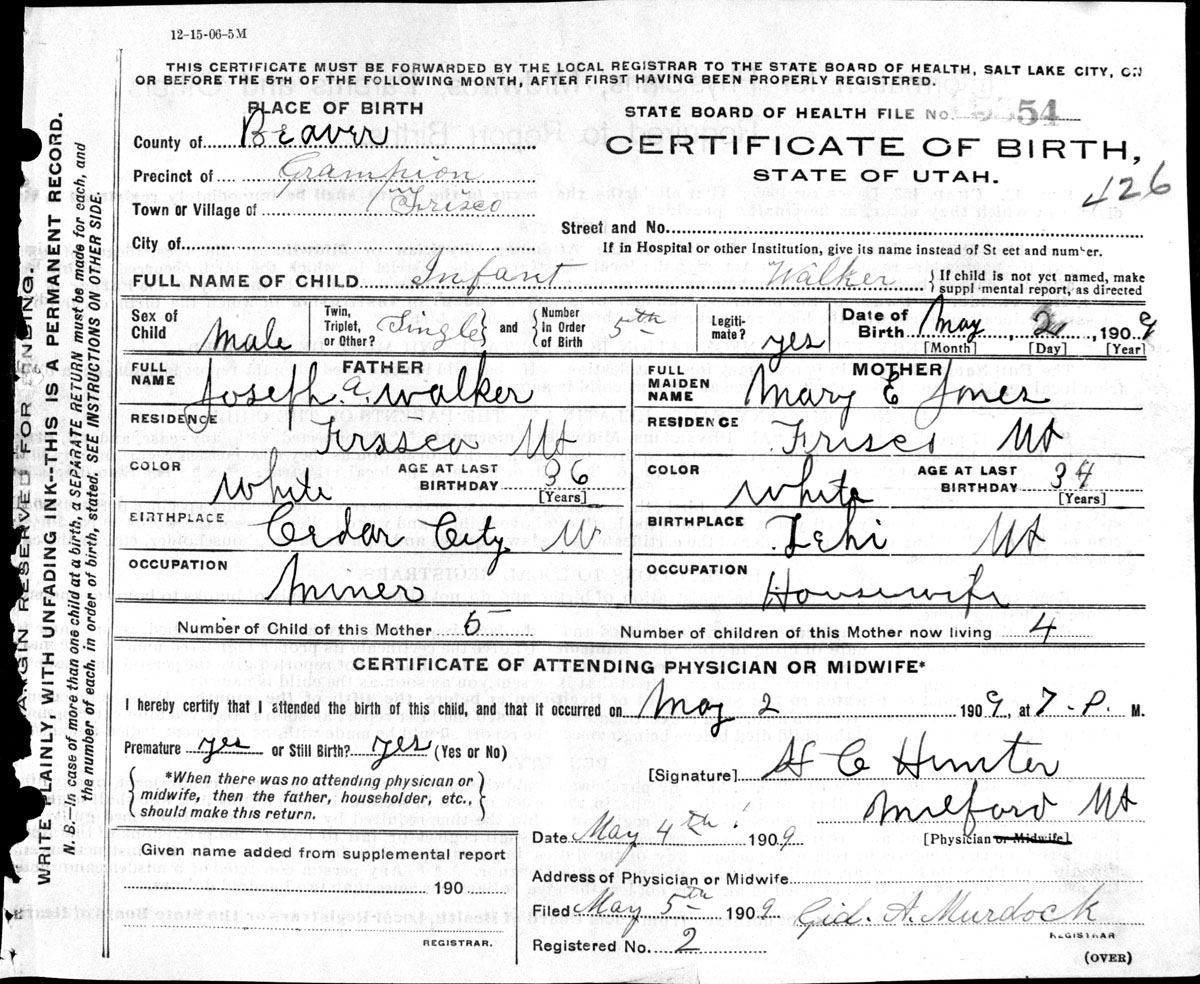 12-15-06-5M
THIS CERTIFICATE MUST BE FORWARDED BY THE LOCAL REGISTRAR TO THE STATE BOARD OF HEALTH, SALT LAKE CITY, ON
OR BEFORE THE 5TH OF THE FOLLOWING MONTH, AFTER FIRST HAVING BEEN PROPERLY REGISTERED.
PLACE OF BIRTH
STATE BOARD OF HEALTH FILE No. 54
County of Beaver
CERTIFICATE OF BIRTH,
Precinct of Grampion
STATE OF UTAH.
426
Town or Village of Frisco
Street and No.
City of
If in Hospital or other Institution, give its name instead of St eet and number.
FULL NAME OF CHILD Infant Walker { If child is not yet named, make supplemental report, as directed
Sex of Child Male Twin, Triplet, or Other? Single } and { Number in Order of Birth 5th Legitimate? yes Date of Birth May 2, 1909
[Month] [Day] [Year]
FATHER
FULL NAME Joseph A. Walker
RESIDENCE Frasco Ut
COLOR White AGE AT LAST BIRTHDAY 36 [Years]
BIRTHPLACE Cedar City U
OCCUPATION Miner
MOTHER
FULL MAIDEN NAME Mary E Jones
RESIDENCE Frisco Ut
COLOR White AGE AT LAST BIRTHDAY 34 [Years]
BIRTHPLACE Lehi Ut
OCCUPATION Housewife
Number of Child of this Mother 5 Number of children of this Mother now living 4
CERTIFICATE OF ATTENDING PHYSICIAN OR MIDWIFE*
I hereby certify that I attended the birth of this child, and that it occurred on May 2 1909, at 7-P. M.
Premature yes or Still Birth? yes (Yes or No)
{ *When there was no attending physician or midwife, then the father, householder, etc., should make this return. }
[Signature] H C Hunter
Milford Ut
[Physician or Midwife]
Date May 4th 1909
Given name added from supplemental report
190
REGISTRAR.
Address of Physician or Midwife
Filed May 5th 1909 Gid. A. Murdock
REGISTRAR
Registered No. 2
(OVER)
MARGIN RESERVED FOR BINDING.
WRITE PLAINLY, WITH UNFADING INK--THIS IS A PERMANENT RECORD.
N. B.--In case of more than one child at a birth, a SEPARATE RETURN must be made for each, and
the number of each, in order of birth, stated. SEE INSTRUCTIONS ON OTHER SIDE.